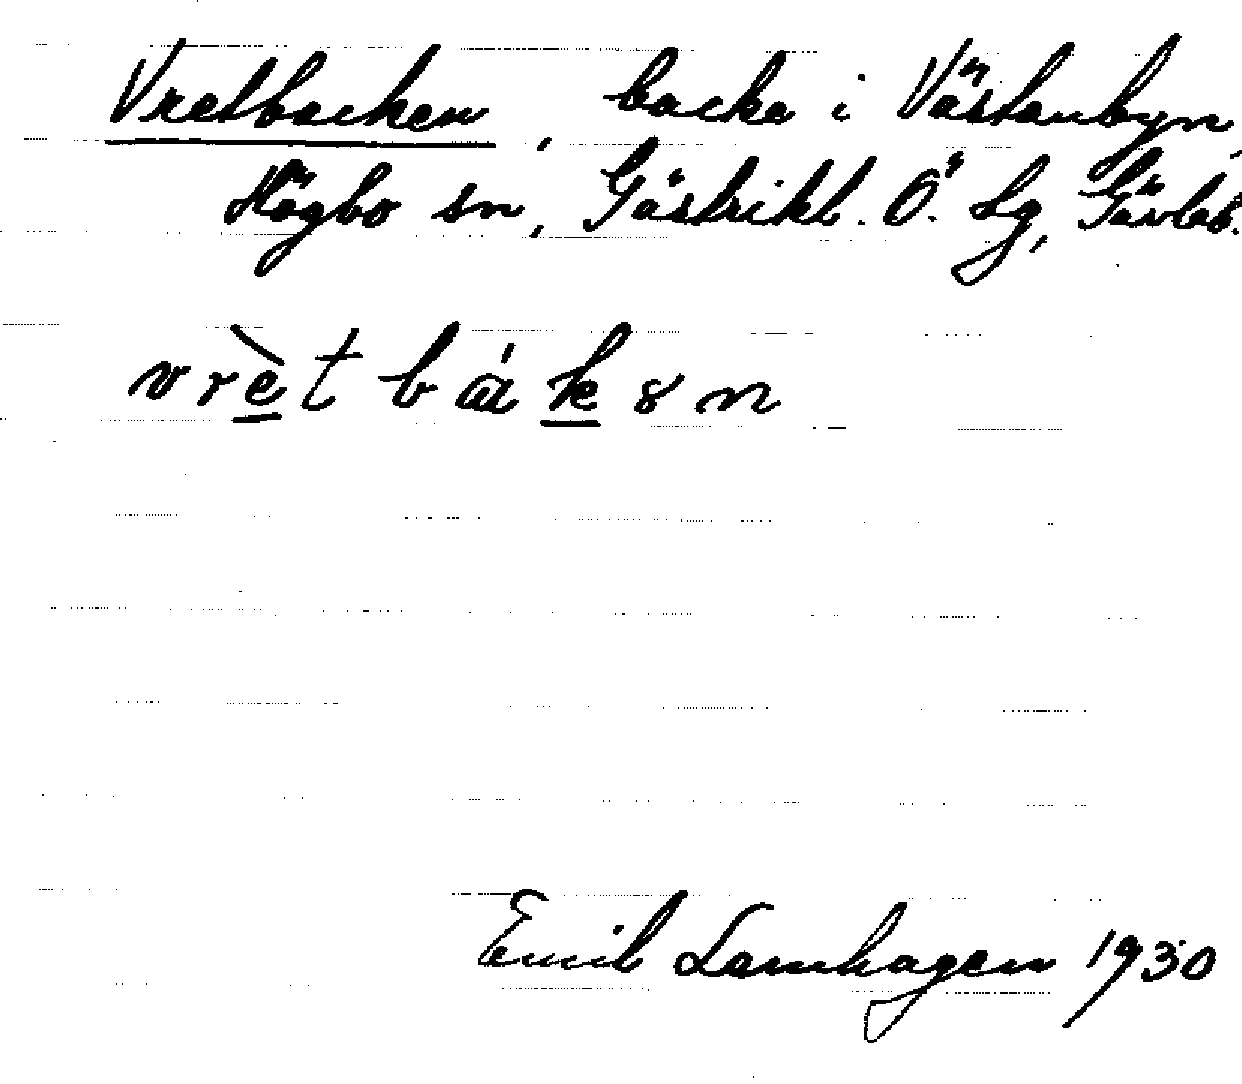 Vretbacken, backe i Västanbyn,
Högbo sn, Gästrikl. Ö. Lg, Gävleb.
vrètbákən
Emil Lamhagen 1930